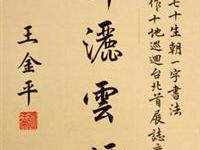 七十生朝一字書法
作十地巡迴台北首展誌
灑雲
王金平